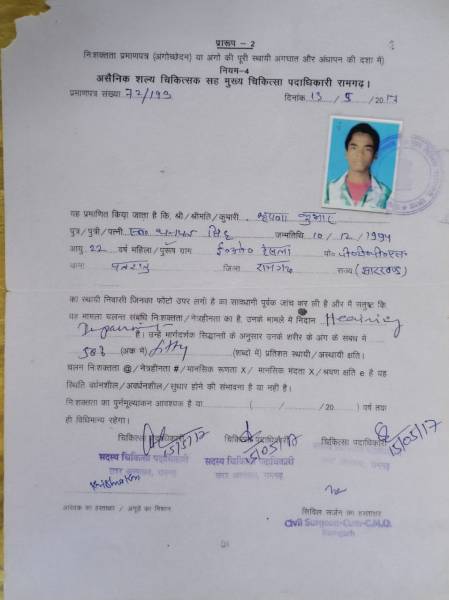 प्रारूप - 2
निःशक्तता प्रमाणपत्र (अंगोच्छेदन) या अंगो की पूरी स्थायी अंगघात और अंधापन की दशा में)
नियम-4
असैनिक शल्य चिकित्सिक सह मुख्य चिकित्सा पदाधिकारी रामगढ़।
प्रमाणपत्र संख्या 72/193 दिनांक 15/5/2017
यह प्रमाणित किया जाता है कि, श्री/श्रीमति/कुमारी कुमार
पुत्र/पुत्री/पत्नी स्व० सिंह जन्मतिथि 10/12/1994
आयु 22 वर्ष महिला/पुरूष ग्राम पो०
थाना पतरातू जिला रामगढ़ राज्य (झारखण्ड)
का स्थायी निवासी जिनका फोटो उपर लगी है का सावधानी पूर्वक जांच कर ली है और मैं संतुष्ट कि
यह मामला चलन्त संबधि निःशक्तता/नेत्रहीनता का है, उनके मामले मे निदान Hearing
Impairment है। उन्हें मार्गदर्शक सिद्धान्तों के अनुसार उनके शरीर के अंग के संबध मे
50% (अंक मे) fifty (शब्दों में) प्रतिशत स्थायी/अस्थायी क्षति।
चलन निःशक्तता @/नेत्रहीनता #/मानसिक रूणता X/मानसिक मंदता X/श्रवण क्षति e है यह
स्थिति वर्धनशील/अवर्धनशील/सुधार होने की संभावना है या नही है।
निःशक्तता का पुर्नमूल्याकंन आवश्यक है या (/ /20 ) वर्ष तक
ही विधिमान्य रहेगा।
चिकित्सा पदाधिकारी चिकित्सा पदाधिकारी चिकित्सा पदाधिकारी
15/5/17 15/05/17 15/05/17
सदस्य चिकित्सा पदाधिकारी सदस्य चिकित्सा पदाधिकारी
सदर अस्पताल, रामगढ़ सदर अस्पताल, रामगढ़
आवेदक का हस्ताक्षर / अगूंठे का निशान सिविल सर्जन का हस्ताक्षर
Civil Surgeon-Cum-C.M.O.
Ramgarh